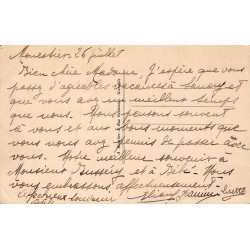 Monestier 26 juillet
Bien chère Madame, J'espère que vous
passez d'agréables vacances à
que vous avez un meilleur temps
que nous. Nous pensons souvent
à vous et aux bons moments que
vous nous avez permis de passer avec
vous. Notre meilleur souvenir à
Monsieur et à Bébé. Nous
vous embrassons affectueusement